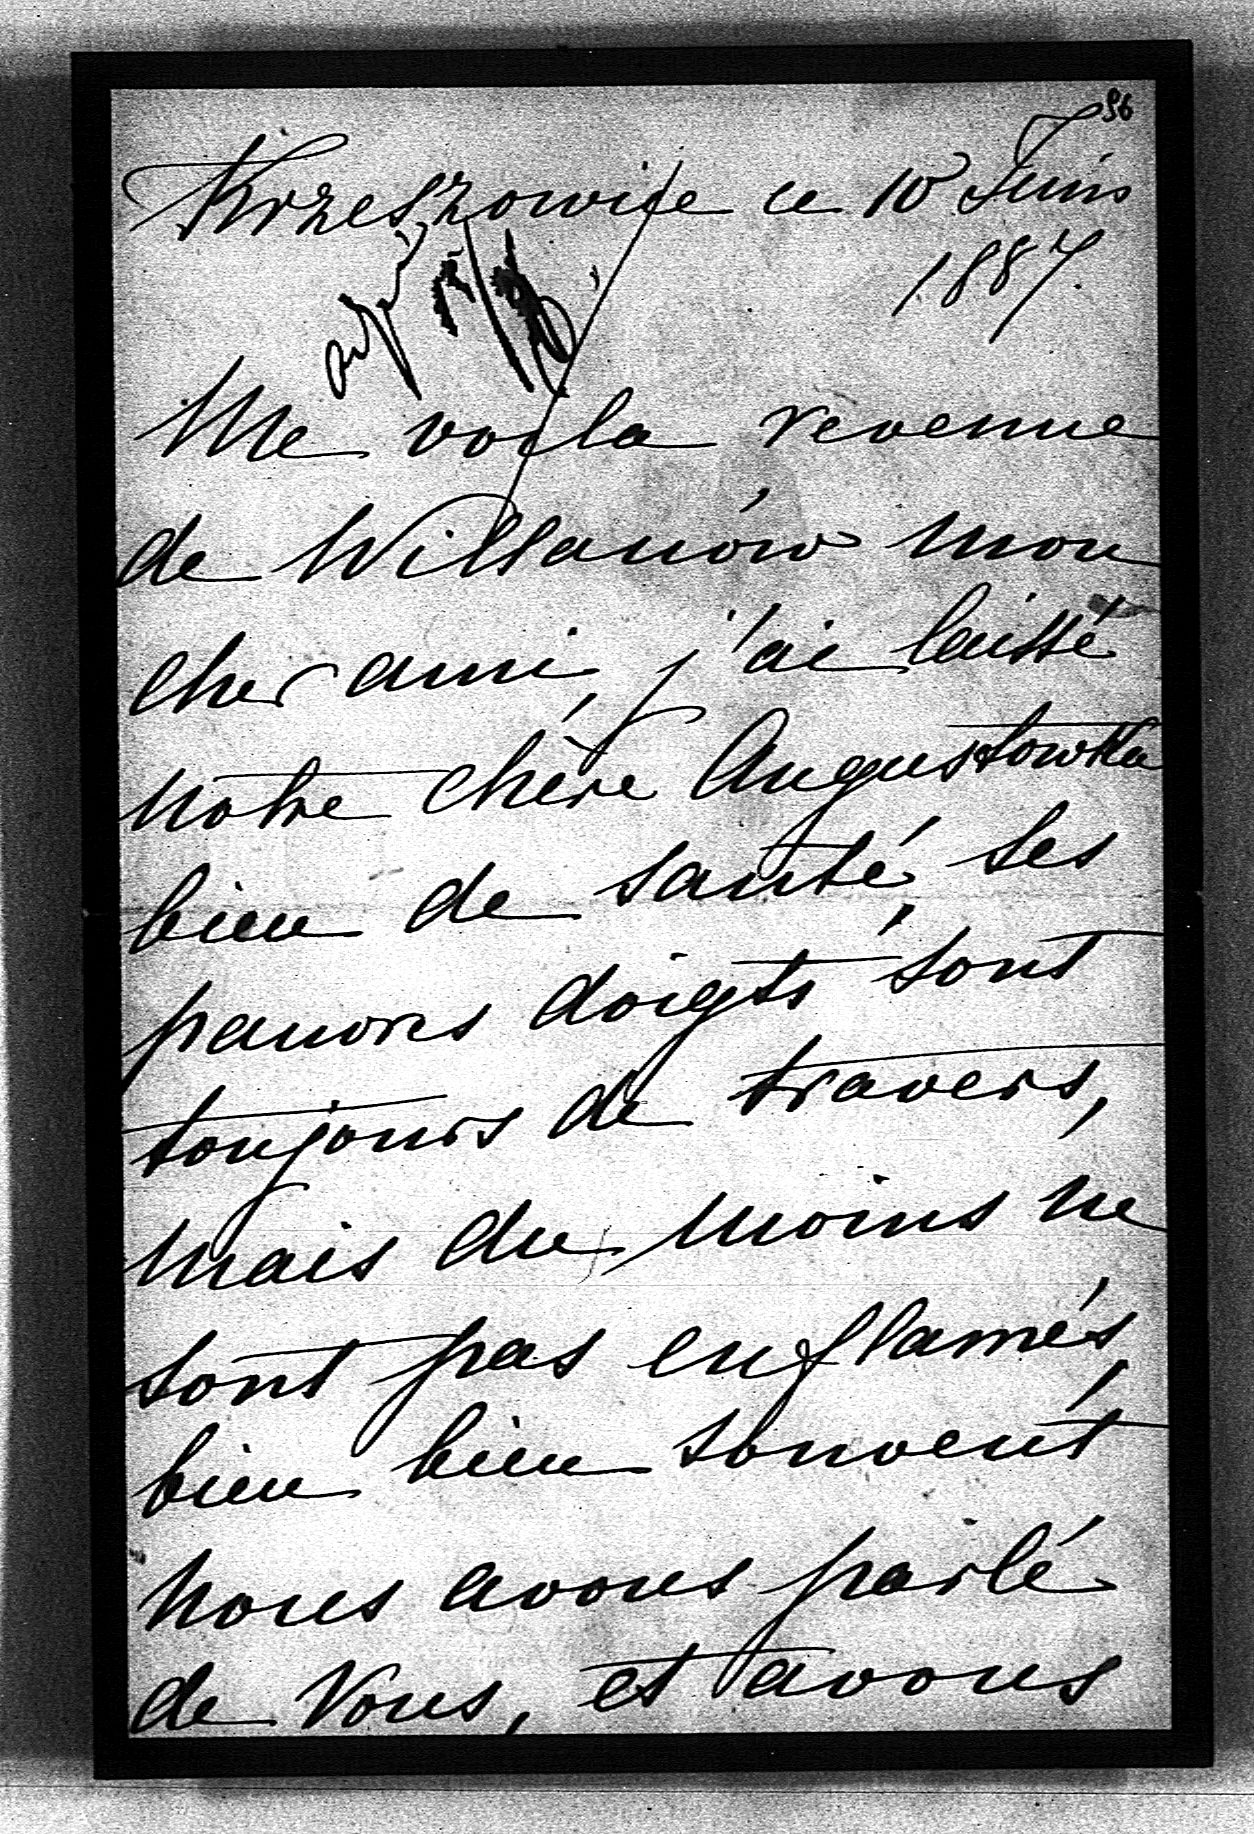 96
Krzeszowice ce 10 Juin
1887.
Me voila revenue
de Willanów mon
cher ami, j'ai laissé
notre chère Augustowka
bien de santé, ses
pauvres doigts sont
toujours de travers,
mais du moins ne
sont pas enflamés,
bien bien souvent
nous avons parlé
de Vous, et avons